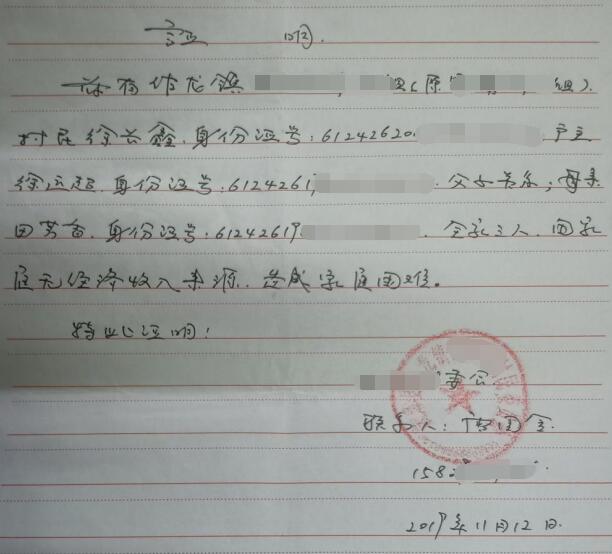 证 明
兹有作龙镇 组(原 组).
村民徐云鑫.身份证号:61242620 户主
徐运 .身份证号:6124261 .父子关系;母亲
田芳香.身份证号:6124261 .全家三人.因家
庭无经济收入来源.造成家庭困难。
特此证明!
委会
联系人: 国
158
2019年11月12日.